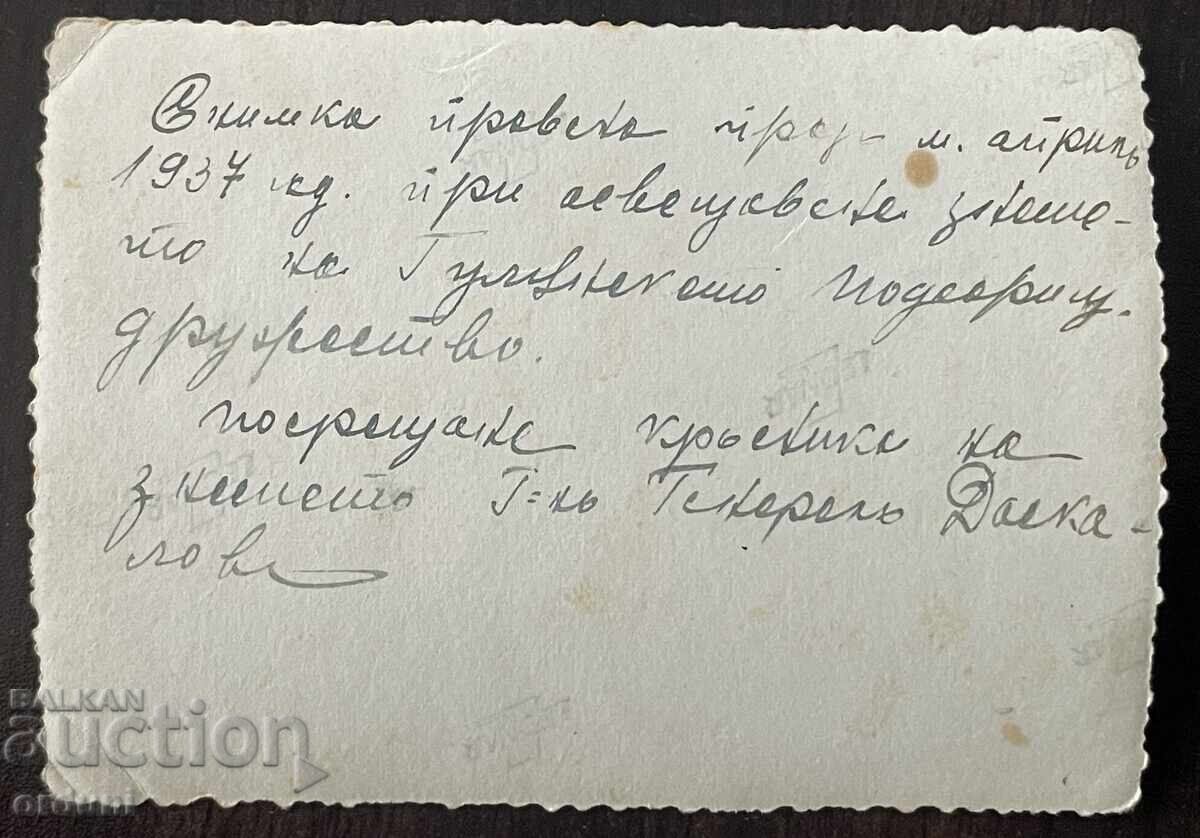 Снимка правена през м. априлъ
1937 год. при освещаване знаме-
то на Гулянското подофиц.
дружество.
Посрещане кръстника на
знамето Г=нъ Генералъ Даска-
ловъ
BALKAN
auction
orduni